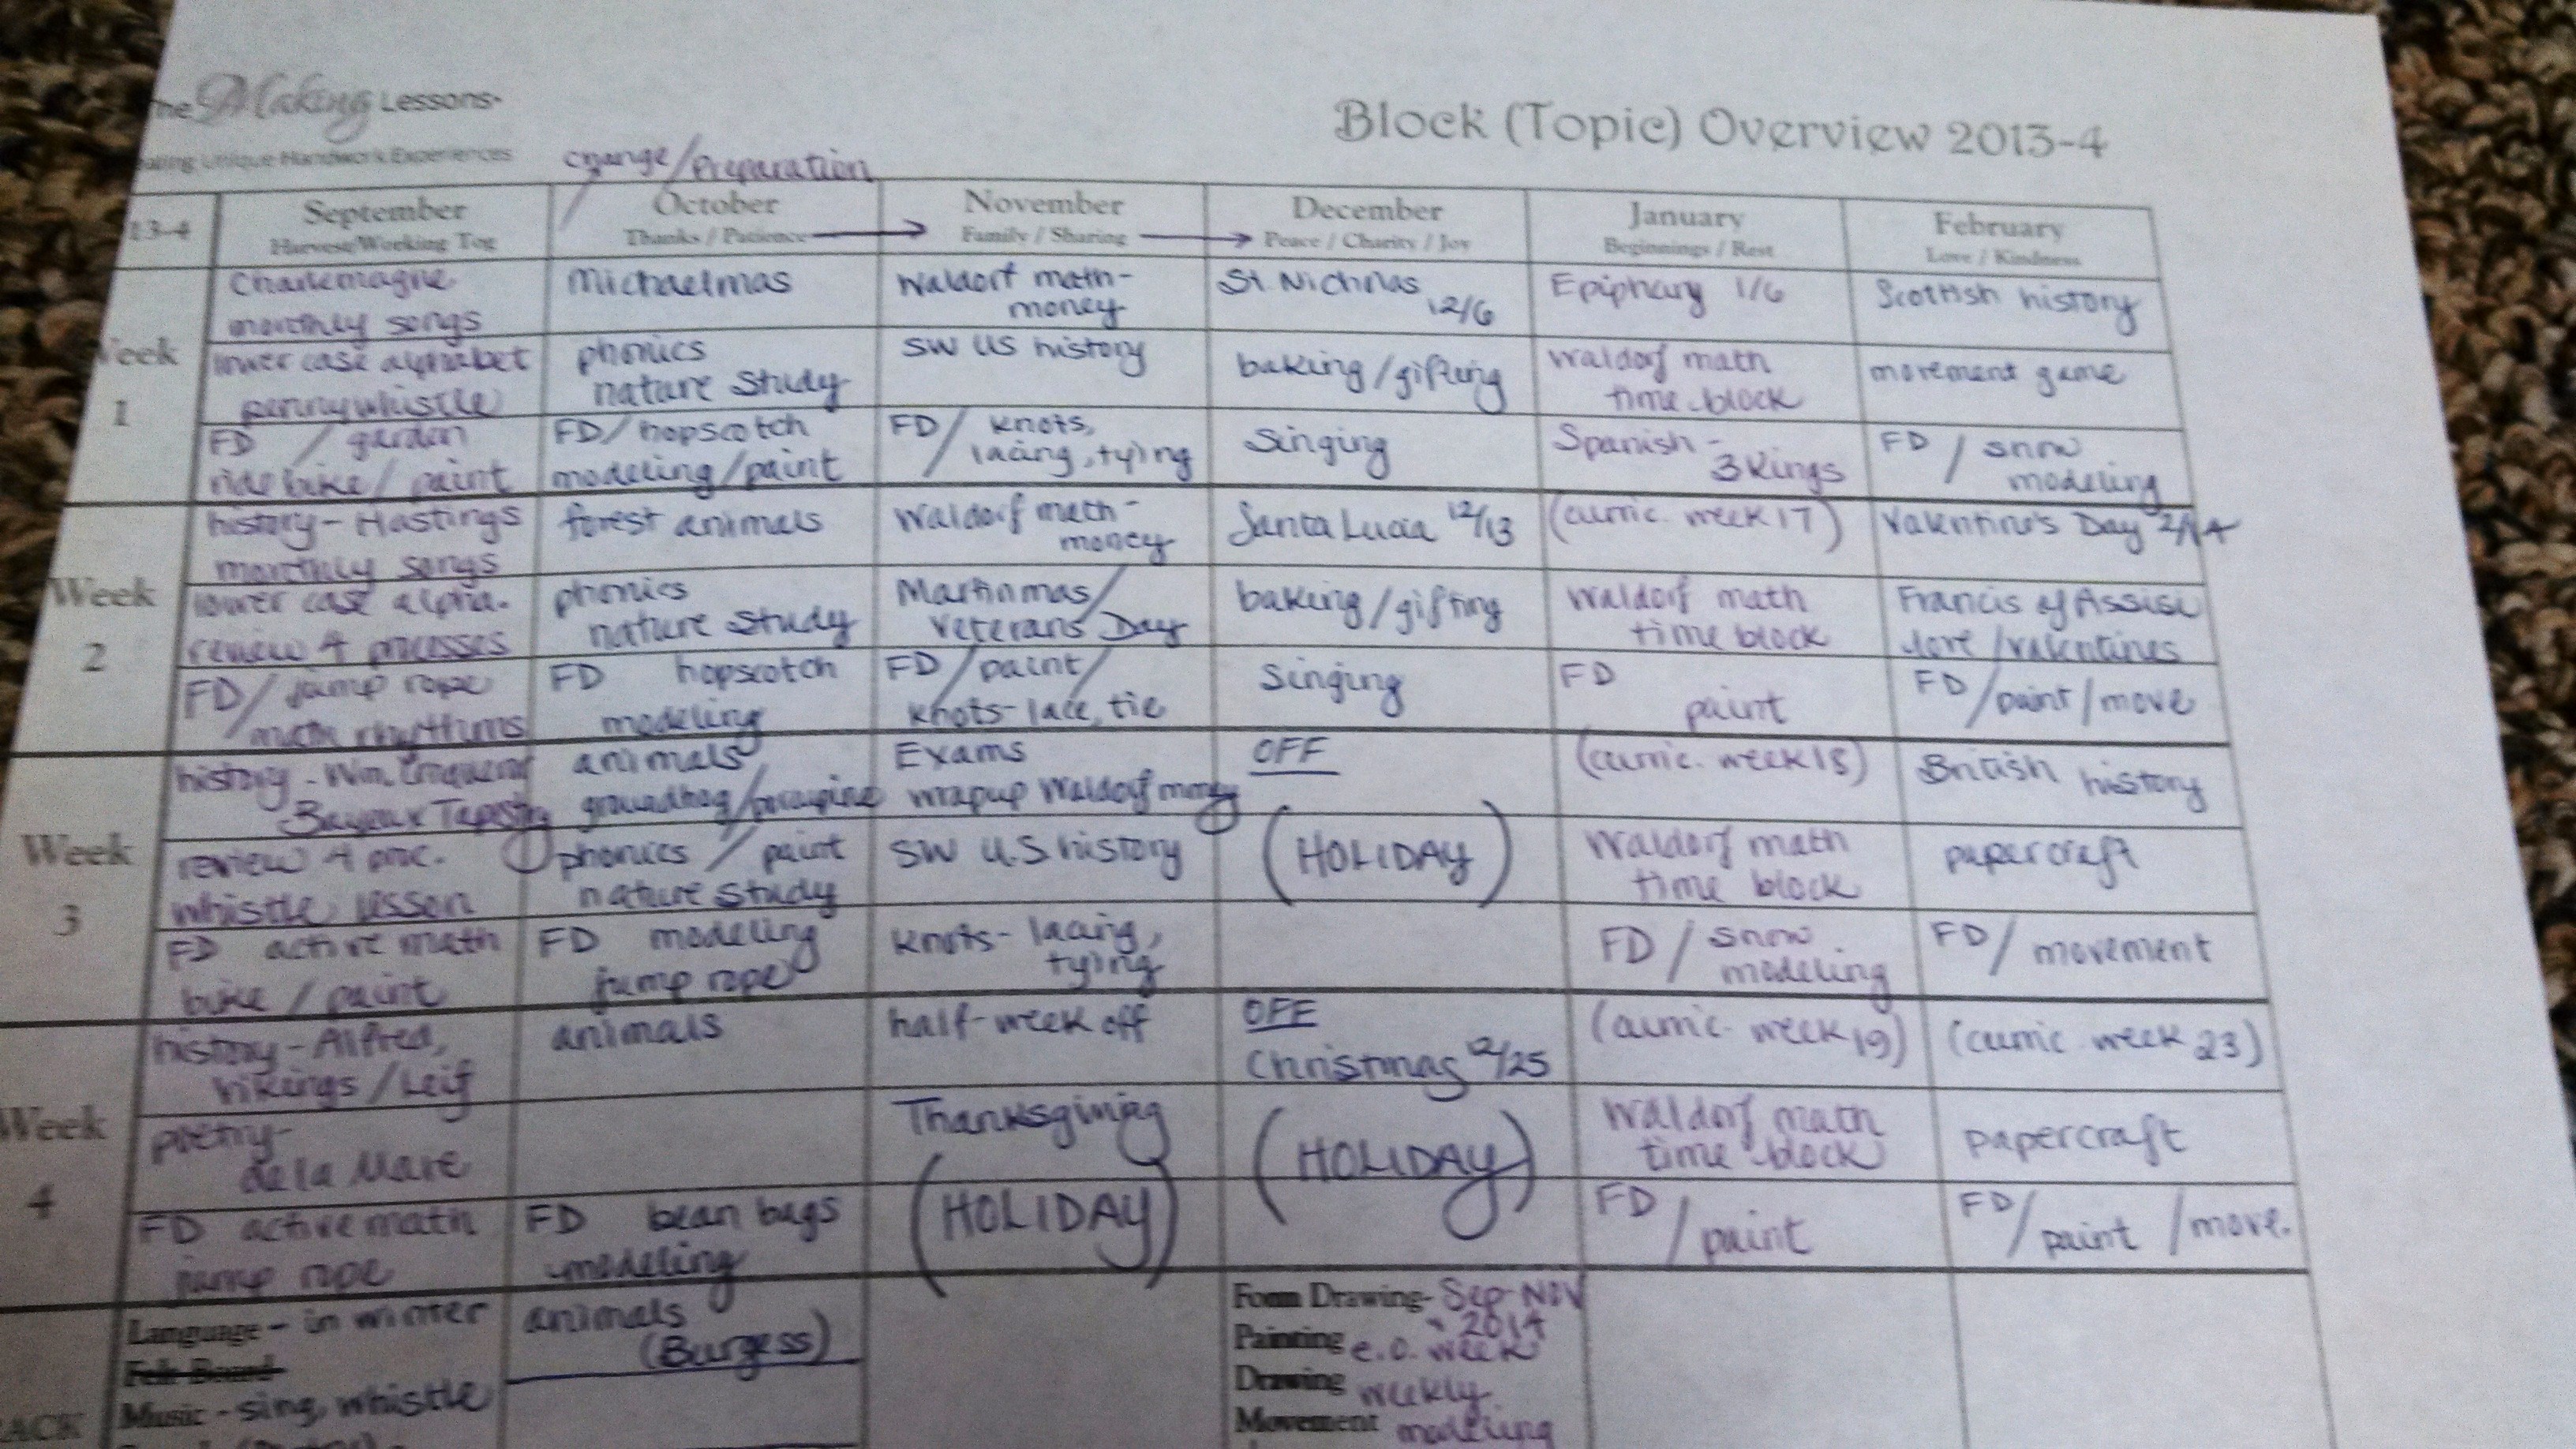 The Making Lessons
Unique Handwork Experiences
Block (Topic) Overview 2013-4
change/Preparation
13-4
September
Harvest/Working Tog
October
Thanks / Patience
November
Family / Sharing
December
Peace / Charity / Joy
January
Beginnings / Rest
February
Love / Kindness
Week
1
Charlemagne
monthly songs
Michaelmas
Waldorf math-
money
St. Nicholas
12/6
Epiphany 1/6
Scottish history
lower case alphabet
pennywhistle
phonics
nature study
SW US history
baking/gifting
Waldorf math
time block
movement game
FD / garden
ride bike / paint
FD/hopscotch
modeling/paint
FD / knots,
lacing, tying
Singing
Spanish -
3 Kings
FD / snow
modeling
Week
2
history - Hastings
monthly songs
forest animals
Waldorf math -
money
Santa Lucia 12/13
(curric. week 17)
Valentine's Day 2/14
lower case alpha.
review 4 processes
phonics
nature study
Martinmas/
Veterans Day
baking/gifting
Waldorf math
time block
Francis of Assisi
love/valentines
FD/jump rope
math rhythums
FD hopscotch
modeling
FD/paint/
knots-lace, tie
Singing
FD
paint
FD/paint/move
Week
3
history - Wm.
Bayeux Tapestry
animals
groundhog/porcupine
Exams
wrapup Waldorf money
OFF
(curric. week 18)
British history
review 4 proc.
whistle lesson
phonics / paint
nature study
SW U.S history
(HOLIDAY)
Waldorf math
time block
papercraft
FD active math
bike / paint
FD modeling
jump rope
knots- lacing,
tying
FD / snow
modeling
FD/ movement
Week
4
history - Alfred,
vikings / Leif
animals
half-week off
OFF
Christmas 12/25
(curric. week 19)
(curric week 23)
poetry-
de la Mare
Thanksgiving
(HOLIDAY)
(HOLIDAY)
Waldorf math
time block
papercraft
FD active math
jump rope
FD bean bags
modeling
FD / paint
FD / paint / move.
Language - in winter
Felt Board
Music - sing, whistle
animals
(Burgess)
Form Drawing- Sep-NOV
2014
Painting e.o. week
Drawing weekly
Movement modeling